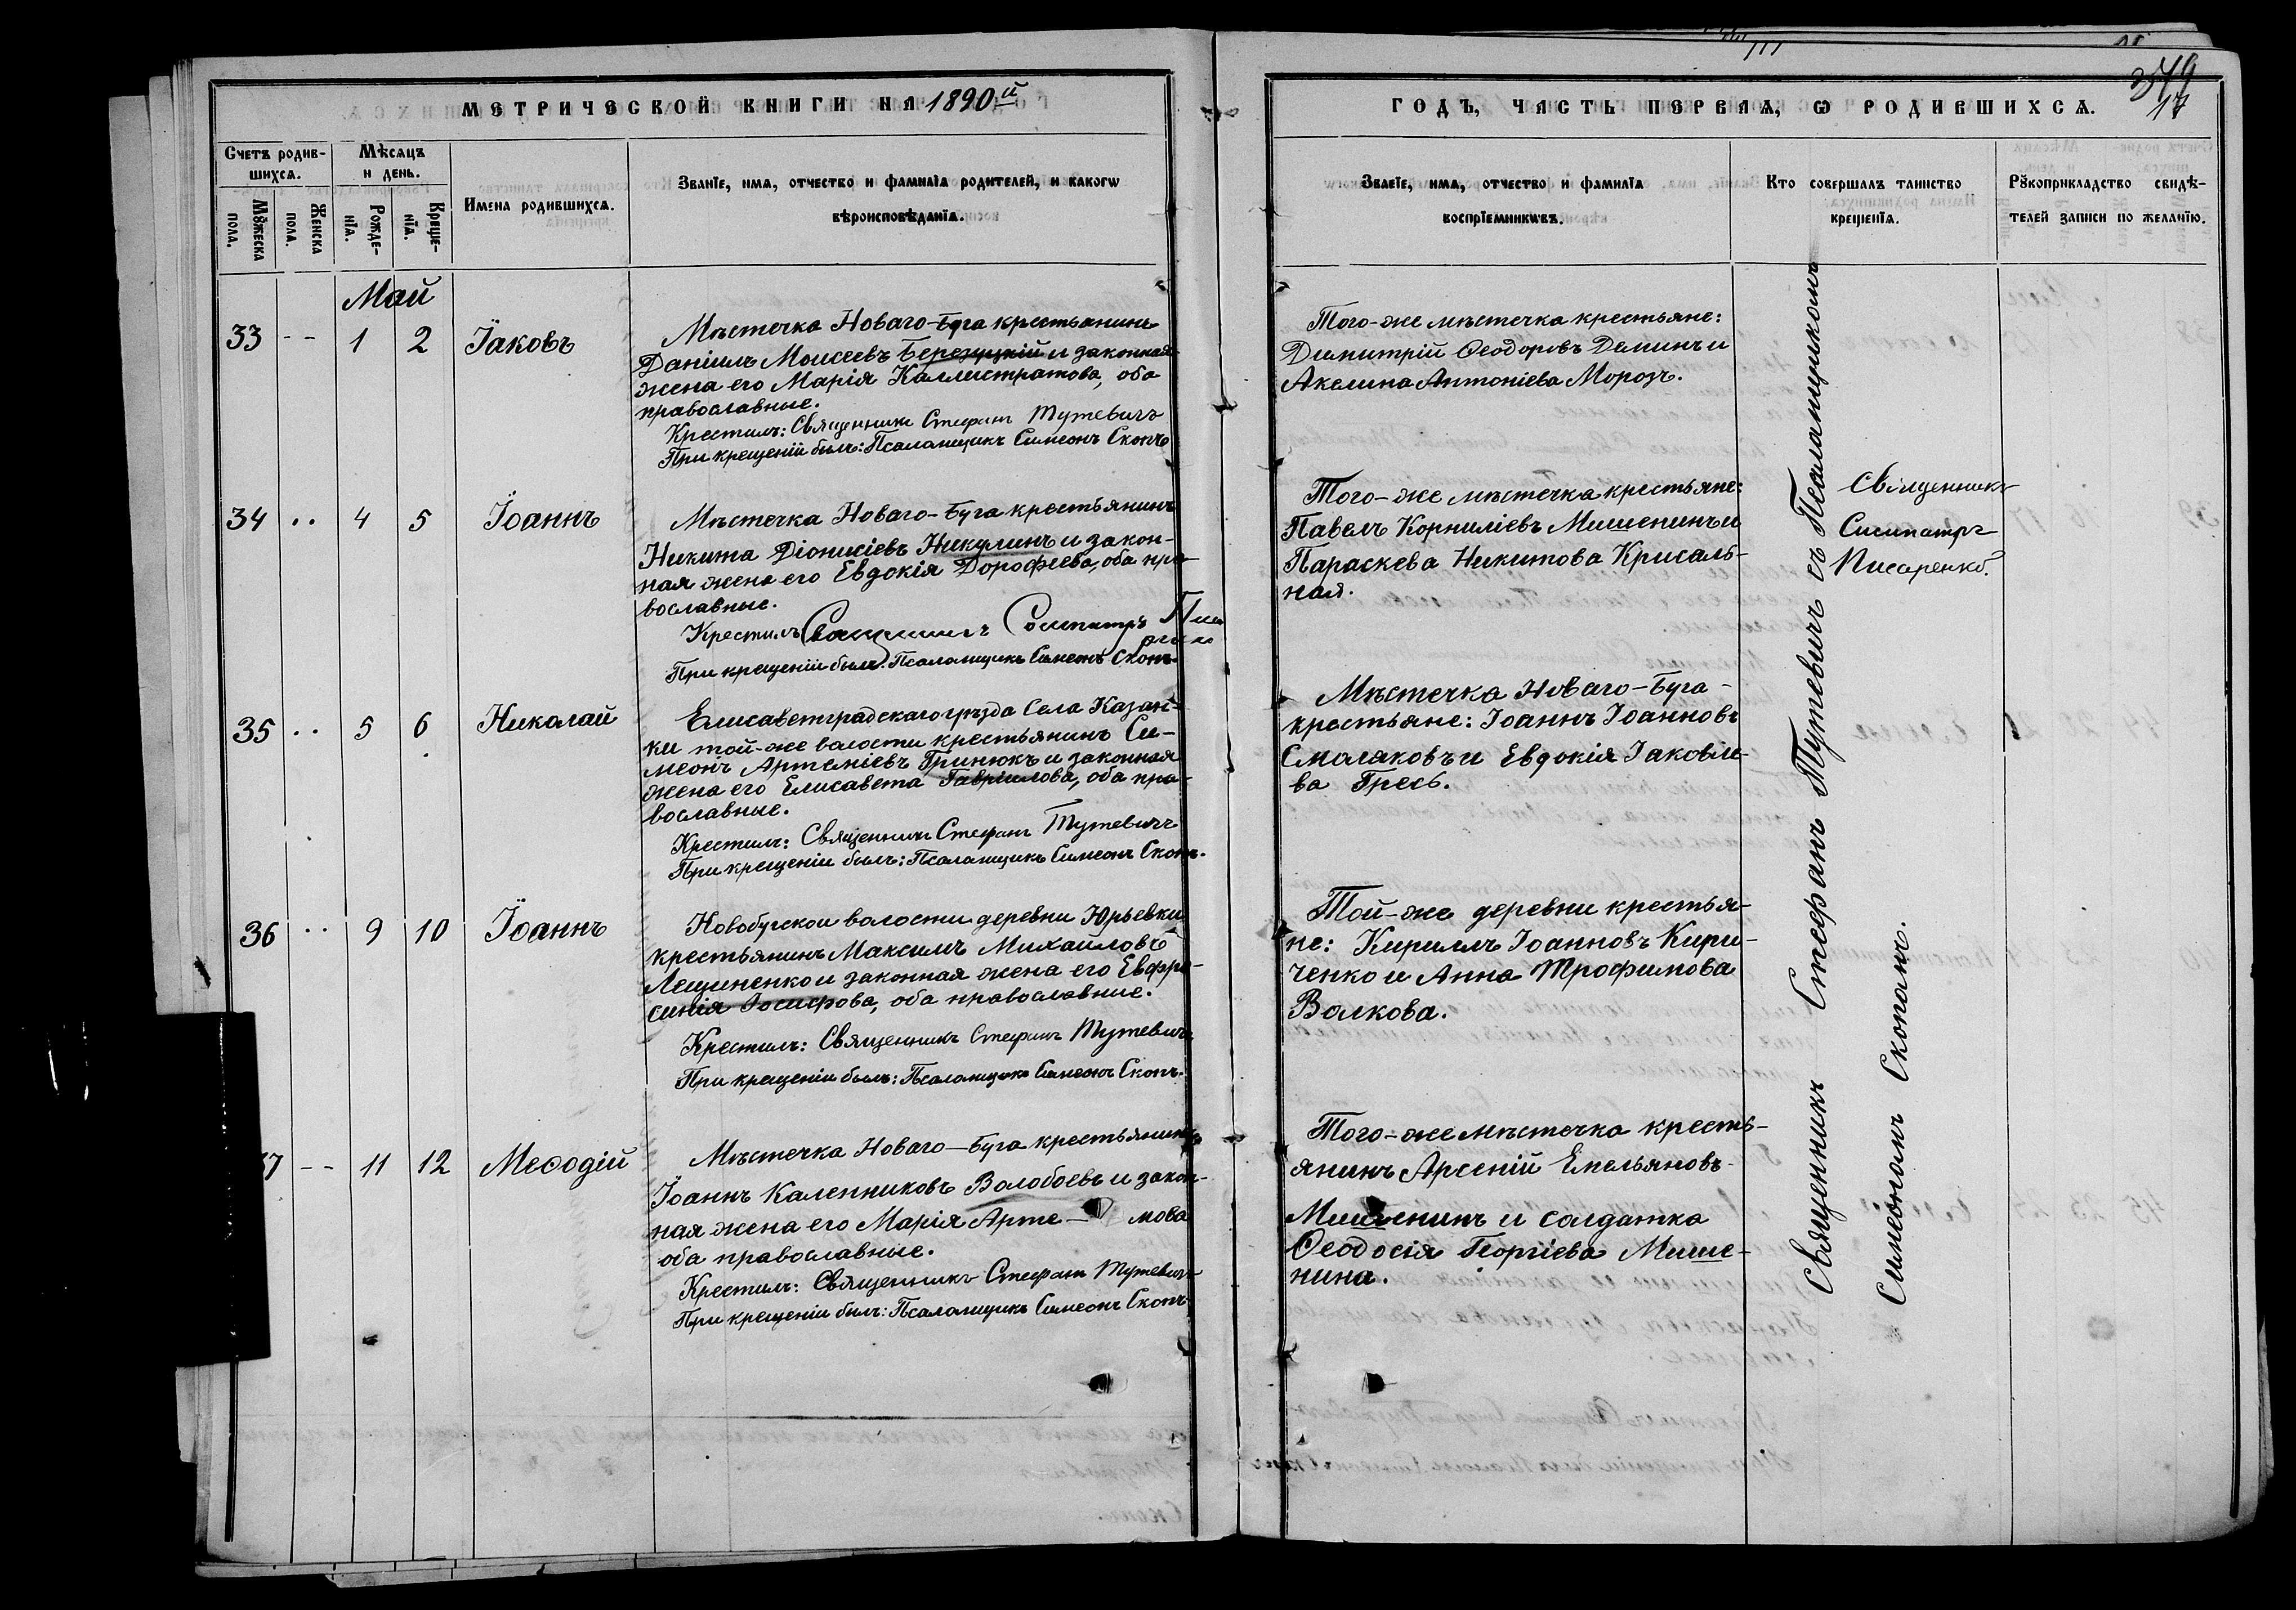 МЕТРИЧЕСКОЙ КНИГИ НА 1890й
Счетъ родив-
шихся.
Мѣсяцъ
и день.
Мужеска
пола.
Женска
пола.
Рожде-
нія.
Креще-
нія.
Имена родившихся.
Званіе, имя, отчество и фамилія родителей, и какогѡ
вѣроисповѣданія.
Май
33 -- 1 2 Іаковъ
Мѣстечка Новаго-Буга крестьянинъ
Даніилъ Моисеевъ Березуцкій и законная
жена его Марія Каллистратова, оба
православные.
Крестилъ: Священникъ Стефанъ Тутевичъ
При крещеніи былъ: Псаломщикъ Симеонъ Скопъ
34 .. 4 5 Іоаннъ
Мѣстечка Новаго-Буга крестьянинъ
Никита Діонисіевъ Никулинъ и закон-
ная жена его Евдокія Дорофеева, оба пра-
вославные.
Крестилъ Священникъ Сосипатръ
При крещеніи былъ: Псаломщикъ Симеонъ Скопъ
35 .. 5 6 Николай
Елисаветградскаго уѣзда Села Казан-
ки той-же волости крестьянинъ Си-
меонъ Артеміевъ Гринюкъ и законная
жена его Елисавета Гавріилова, оба пра-
вославные.
Крестилъ: Священникъ Стефанъ Тутевичъ
При крещеніи былъ: Псаломщикъ Симеонъ Скопъ.
36 .. 9 10 Іоаннъ
Новобугской волости деревни Юрьевки
крестьянинъ Максимъ Михайловъ
Лещиненко и законная жена его Евфро-
синія Іосифова, оба православные.
Крестилъ: Священникъ Стефанъ Тутевичъ
При крещеніи былъ: Псаломщикъ Симеонъ Скопъ.
7 -- 11 12 Меѳодій
Мѣстечка Новаго-Буга крестьянинъ
Іоаннъ Каленниковъ Волобоевъ и закон-
ная жена его Марія Арте- мова
оба православные.
Крестилъ: Священникъ Стефанъ Тутевичъ
При крещеніи былъ: Псаломщикъ Симеонъ Скопъ
17
ГОДЪ, ЧАСТЬ ПЕРВАЯ, Ѡ РОДИВШИХСЯ.
Званіе, имя, отчество и фамилія
воспріемникѡвъ.
Кто совершалъ таинство
крещенія.
Рукоприкладство свидѣ-
телей записи по желанію.
Того-же мѣстечка крестьяне:
Димитрій Ѳеодоровъ Деминъ и
Акелина Антоніева Морозъ.
Того-же мѣстечка крестьяне:
Павелъ Корниліевъ Мишенинъ и
Параскева Никитова Крисаль-
ная.
Мѣстечка Новаго-Буга-
крестьяне: Іоаннъ Іоанновъ
Смоляковъ и Евдокія Іаковле-
ва Гресь.
Той-же деревни крестья-
не: Кириллъ Іоанновъ Кири-
ченко и Анна Трофимова
Волкова.
Того-же мѣстечка кресть-
янинъ Арсеній Емельяновъ
Мишенинъ и солдатка
Ѳеодосія Георгіева Мише-
нина.
Священникъ Стефанъ Тутевичъ съ Псаломщикомъ
Симеономъ Скопомъ.
Священникъ
Сосипатръ
Писаренко.